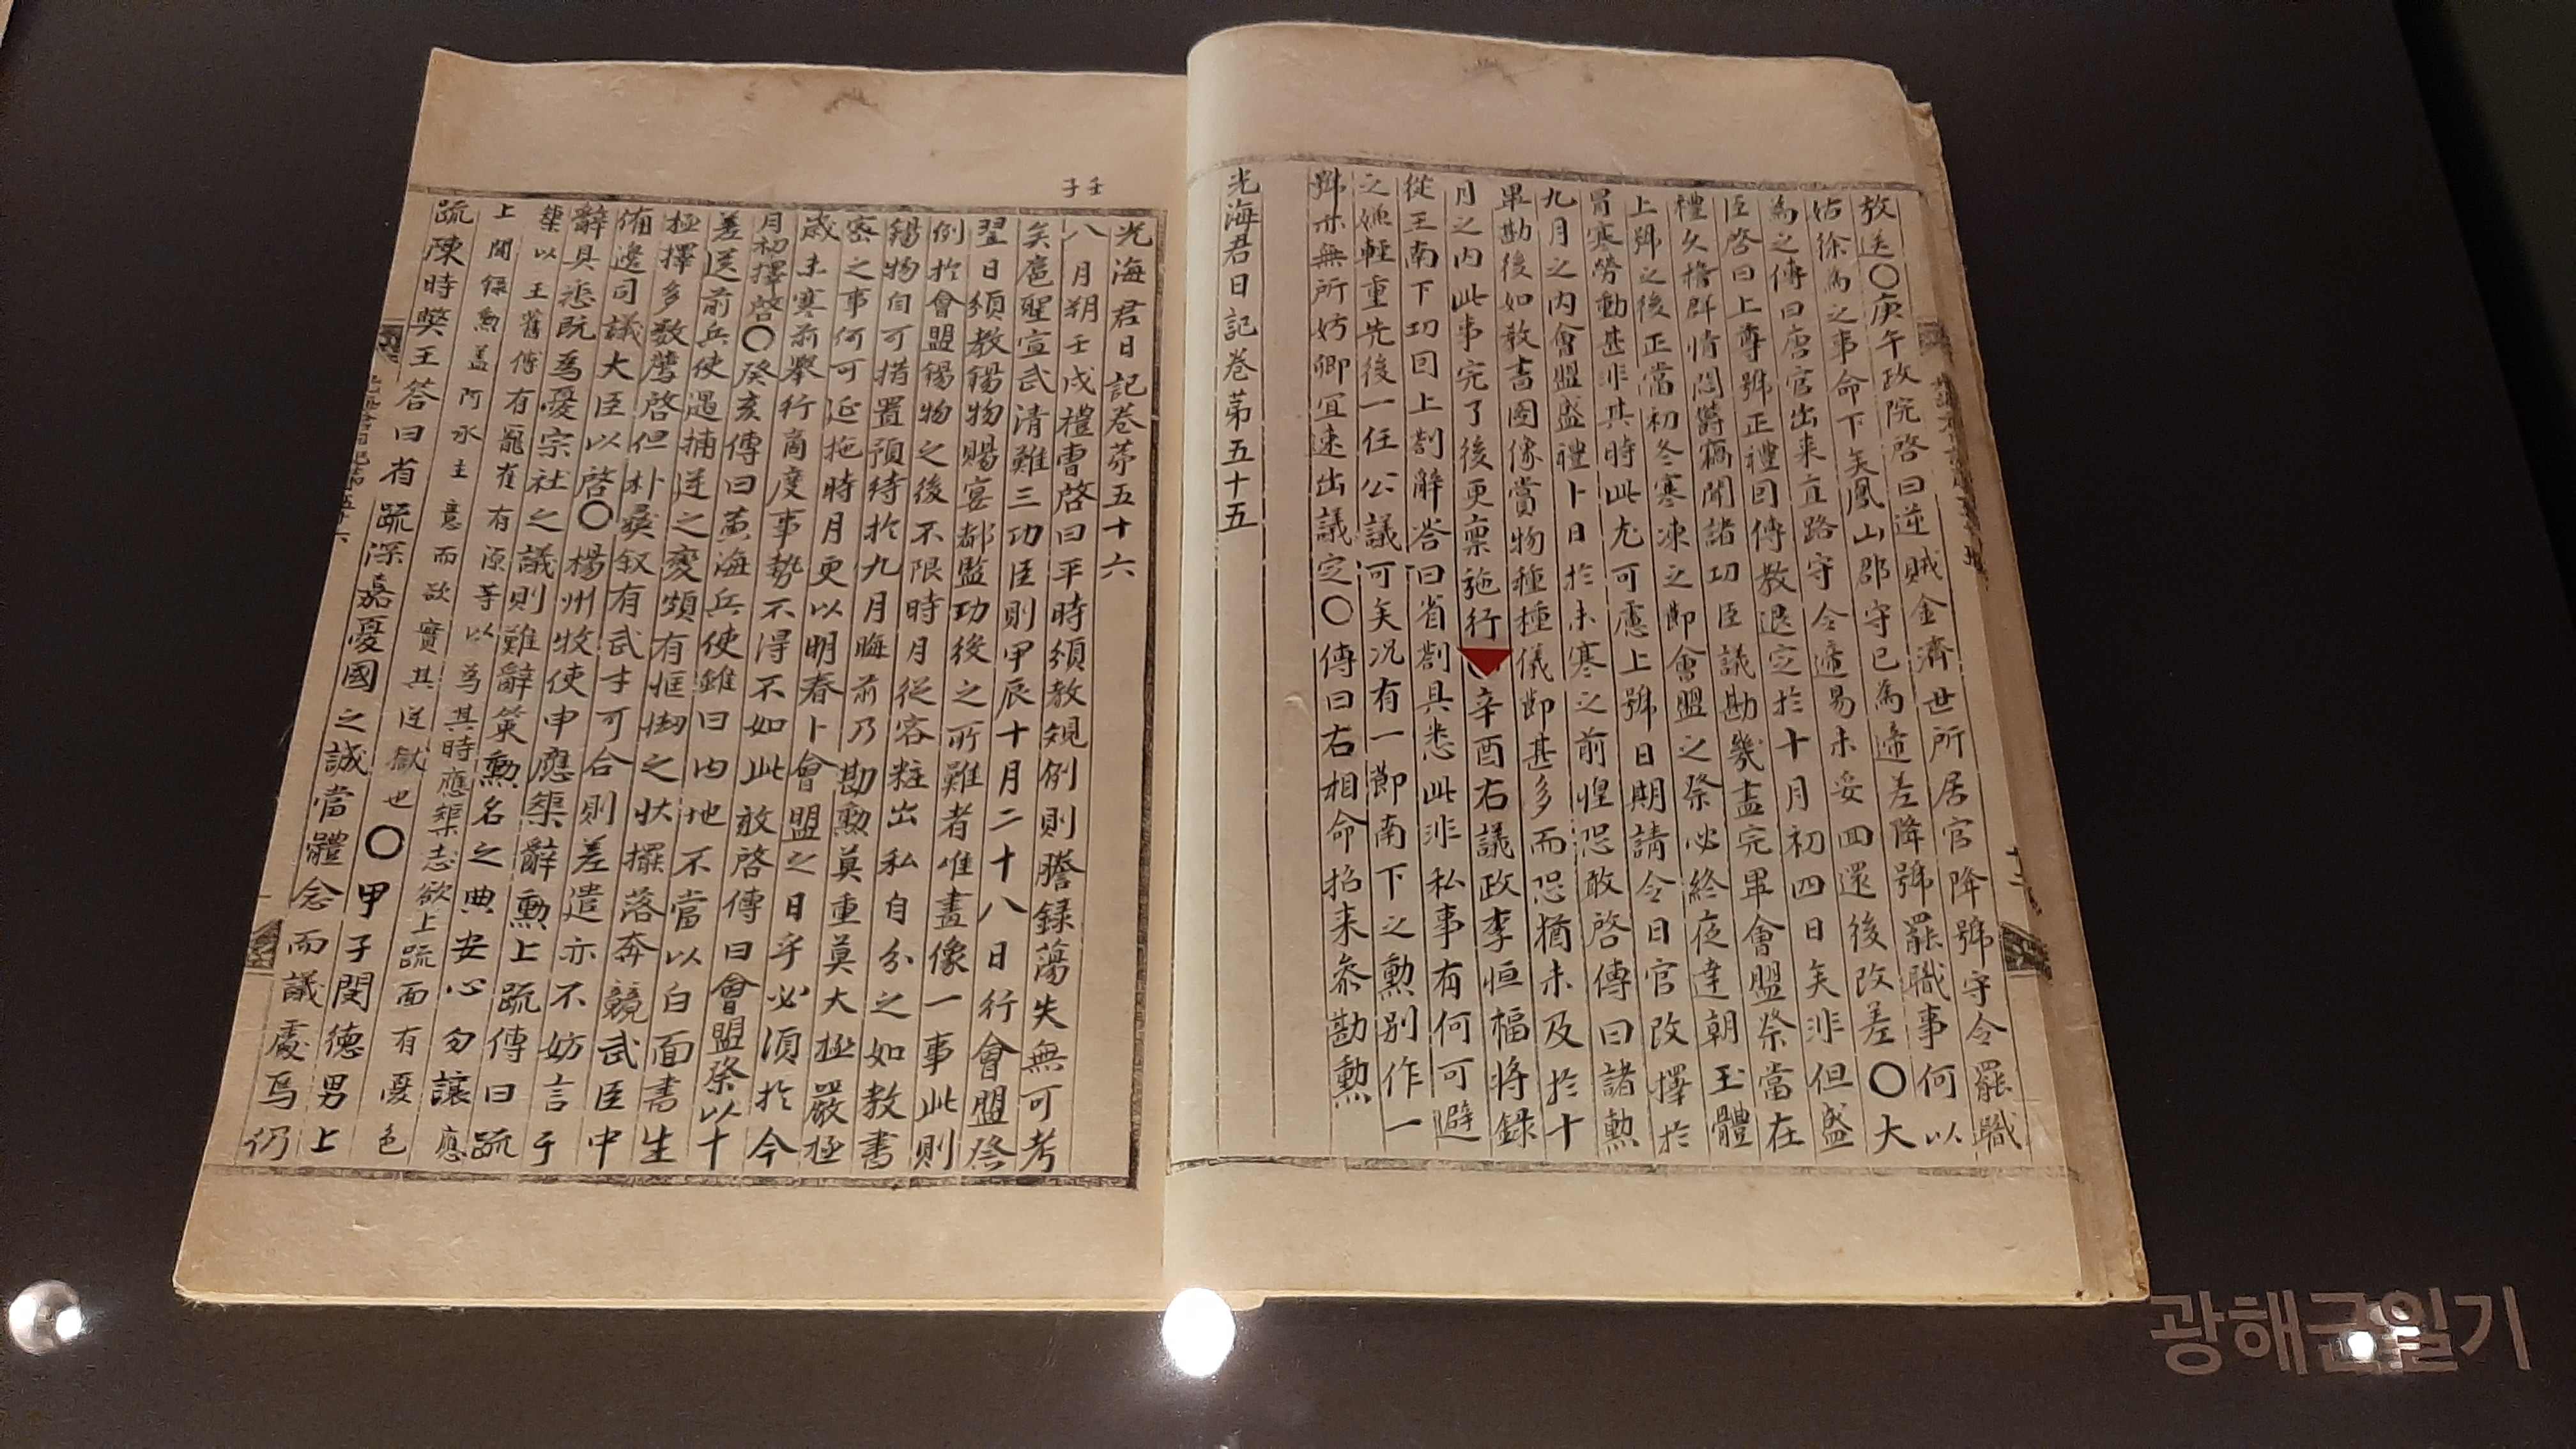 放送○庚午政院啓曰逆賊金濟世所居官降號守令罷職
姑徐爲之事命下矣鳳山郡守已爲遞差降號罷職事何以
爲之傳曰唐官出來直路守令遞易未妥回還後改差○大
臣啓曰上尊號正禮回傳敎退定於十月初四日矣非但盛
禮久擔群情悶鬱竊聞諸功臣議勘幾盡完畢會盟祭當在
上號之後正當初冬寒凍之節會盟之祭必終夜達朝玉體
冒寒勞動甚非其時此尤可慮上號日期請令日官改擇於
九月之內會盟盛禮卜日於未寒之前惶恐敢啓傳曰諸勳
畢勘後如敎書圖像賞物種種儀節甚多而恐猶未及於十
月之內此事完了後更稟施行 辛酉右議政李恒福將錄
從王南下功回上劄辭答曰省劄具悉此非私事有何可避
之嫌輕重先後一任公議可矣况有一節南下之勳別作一
號亦無所妨卿宜速出議定○傳曰右相命招来叅勘勲
光海君日記卷苐五十五
壬子
光海君日記卷苐五十六
八月朔壬戌禮曹啓曰平時頒敎規例則謄録蕩失無可考
矣扈聖宣武清難三功臣則甲辰十月二十八日行會盟祭
翌日頒敎錫物賜宴都監功後之所難者唯畫像一事此則
例於會盟錫物之後不限時月從容粧出私自分之如敎書
錫物自可措置預待於九月晦前乃勘勲莫重莫大極嚴極
密之事何可延拖時月更以明春卜會盟之日乎必須於今
歲未寒前擧行商度事勢不得不如此敢啓傳曰會盟祭以十
月初擇啓○癸亥傳曰黃海兵使雖曰內地不當以白面書生
差送前兵使遇捕逆之變頗有恇㥘之状擺落奔競武臣中
極擇多數薦啓但朴燁叙有武才可合則差遣亦不妨言于
備邊司議大臣以啓○楊州牧使申應榘辭勲上疏傳曰疏
辭具悉旣爲憂宗社之議則難辭策勲名之典安心勿讓應
榘以王舊傅有寵崔有原等以爲其時應榘志欲上疏面有憂色
上聞錄勲盖阿承主意而欲實其逆獄也○甲子閔德男上
疏陳時獘王答曰省疏深嘉憂國之誠當體念而議處焉仍
광해군일기